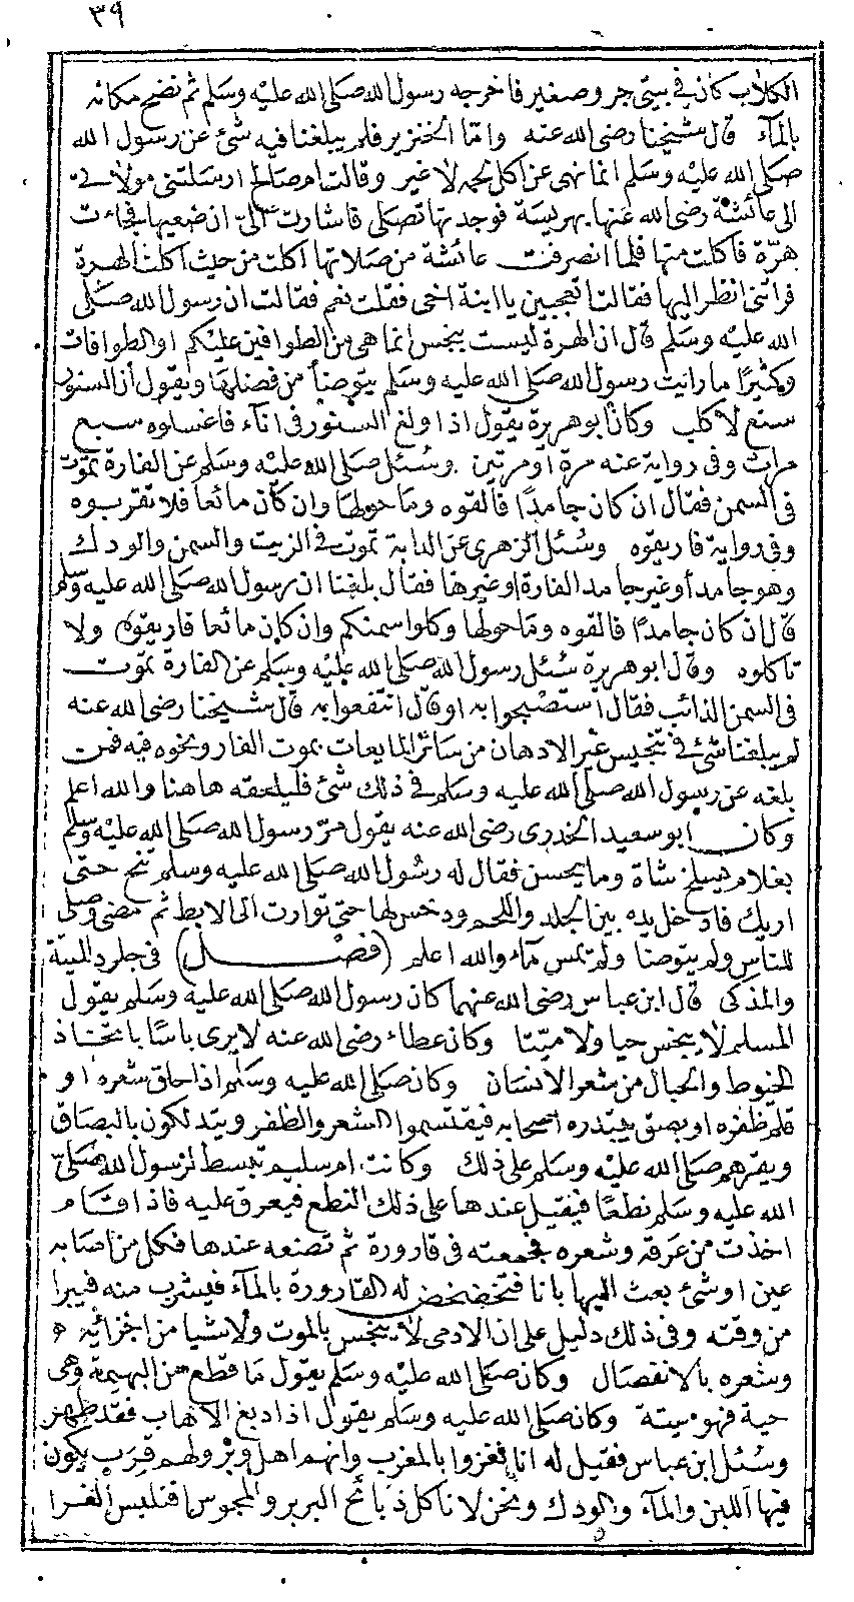 ٣٩
الكلاب كان في بيتي جرو صغير فاخرجه رسول الله صلى الله عليه وسلم ثم نضح مكانه
بالمآء قال شيخنا رضى الله عنه واما الخنزير فلم يبلغنا فيه شئ عن رسول الله
صلى الله عليه وسلم انما نهى عن اكل لحمه لا غير وقالت ام صالح ارسلتنى مولاتى
الى عائشة رضى الله عنها بهريسة فوجدتها تصلى فاشارت الىّ ان ضعيها فجاءت
هرّة فاكلت منها فلما انصرفت عائشة من صلاتها اكلت من حيث اكلت الهرة
فراتنى انظر اليها فقالت اتعجبين يا ابنة اخى فقلت نعم فقالت ان رسول الله صلى
الله عليه وسلم قال ان الهرة ليست بنجس انما هى من الطوافين عليكم او الطوافات
وكثيرًا ما رايت رسول الله صلى الله عليه وسلم يتوضأ من فضلها ويقول ان السنور
سبع لا كلب وكان ابو هريرة يقول اذا ولغ السنور فى انآء فاغسلوه سبع
مرات وفى رواية عنه مرة او مرتين وسئل صلى الله عليه وسلم عن الفارة تموت
فى السمن فقال ان كان جامدًا فالقوه وما حولها وان كان مائعا فلا تقربوه
وفى رواية فاريقوه وسئل الزهرى عن الدابة تموت فى الزيت والسمن والودك
وهو جامد أو غير جامد الفارة او غيرها فقال بلغنا ان رسول الله صلى الله عليه وسلم
قال ان كان جامدًا فالقوه وما حولها وكلوا سمنكم وان كان مائعا فاريقوه ولا
تاكلوه وقال ابو هريرة سئل رسول الله صلى الله عليه وسلم عن الفارة تموت
فى السمن الذائب فقال استصبحوا به او قال انتفعوا به قال شيخنا رضى الله عنه
لم يبلغنا شئ فى تنجيس غير الادهان من سائر المايعات بموت الفار ونحوه فيه فمن
بلغه عن رسول الله صلى الله عليه وسلم فى ذلك شئ فليلحقه هاهنا والله اعلم
وكان ابو سعيد الخدرى رضى الله عنه يقول مرّ رسول الله صلى الله عليه وسلم
بغلام يسلخ شاة وما يحسن فقال له رسول الله صلى الله عليه وسلم تنح حتى
اريك فادخل يده بين الجلد واللحم ودخس لها حتى توارت الى الابط ثم مضى وصلى
للناس ولم يتوضا ولم يمس مآء والله اعلم (فصل) فى جلود الميتة
والمذكى قال ابن عباس رضى الله عنهما كان رسول الله صلى الله عليه وسلم يقول
المسلم لا ينجس حيا ولا ميّتا وكان عطاء رضى الله عنه لا يرى باسًا باتخاذ
الخيوط والحبال من شعر الانسان وكان صلى الله عليه وسلم اذا حلق شعره او
قلم ظفره او بصق يبتدره اصحابه فيقتسموا الشعر والظفر ويتدلكون بالبصاق
ويقرهم صلى الله عليه وسلم على ذلك وكانت ام سليم تبسط لرسول الله صلى
الله عليه وسلم نطعًا فيقيل عندها على ذلك النطع فيعرق عليه فاذا قام
اخذت من عرقه وشعره فجمعته فى قارورة ثم تصنعه عندها فكل من اصابه
عين او شئ بعث اليها بانا فتخضخض له القارورة بالمآء فيشرب منه فيبرا
من وقته وفى ذلك دليل على ان الادمى لا ينجس بالموت ولا شيا من اجزائه
وشعره بالانفصال وكان صلى الله عليه وسلم يقول ما قطع من البهيمة وهى
حية فهو ميتة وكان صلى الله عليه وسلم يقول اذا دبغ الاهاب فقد طهر
وسئل ابن عباس فقيل له انا نغزوا بالمغرب وانهم اهل وبر ولهم قرب يكون
فيها اللبن والمآء والودك ونحن لا ناكل ذبائح البربر والمجوس افنلبس الفرا